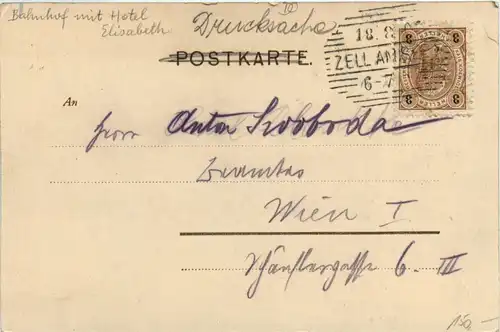 Bahnhof mit Hotel
Elisabeth
Drucksache
POSTKARTE.
18.8
ZELL AM S
6-7
3 3
An
Herr Anton Svoboda
Beamter
Wien I
6. III
150,-